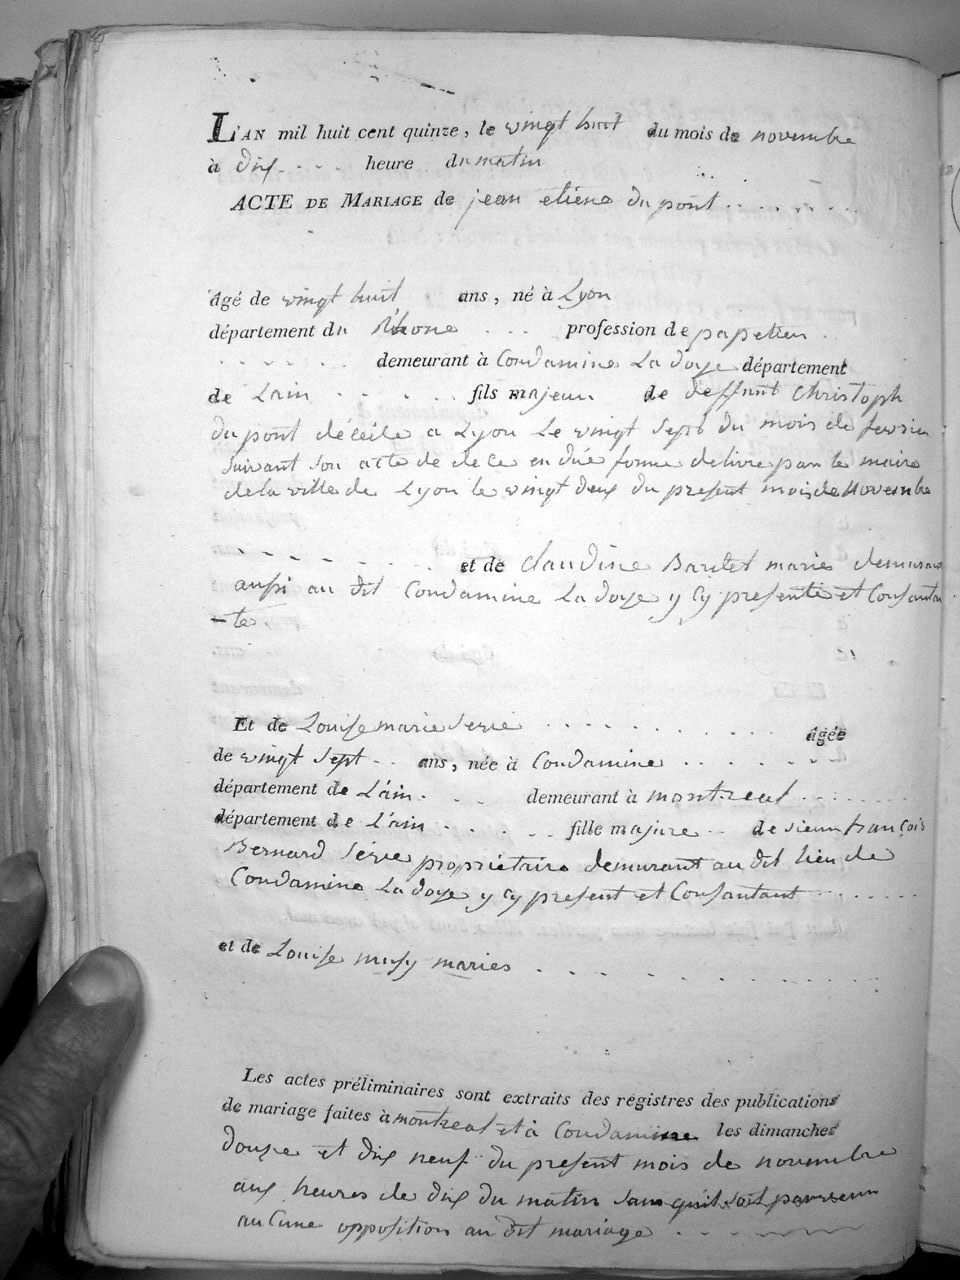 L'AN mil huit cent quinze, le vingt huit du mois de novembre
à dix heure du matin
ACTE DE MARIAGE de jean etiene du pont
âgé de vingt huit ans, né à Lyon
département du Rhone profession de papetier
demeurant à Condamine La doye département
de Lain fils majeur de deffunt Christoph
du pont décédé a Lyon Le vingt sept du mois de fevrier
suivant son acte de dece en due forme delivre par le maire
de la ville de Lyon le vingt deux du present mois de Novembre
et de claudine Bardet maries demurant
aussi au dit Condamine La doye y Cy presente et Consantan
-te,
Et de Louise marie Serie âgée
de vingt sept ans, née à Condamine
département de L'ain demeurant à montreal
département de L'ain fille majure de sieur françois
Bernard Série propriétaire demurant au dit lieu de
Condamine La doye y Cy present et Consantant
et de Louise musy maries
Les actes préliminaires sont extraits des régistres des publications
de mariage faites à montreal et à Condamine les dimanches
douze et dix neuf du present mois de novembre
aux heures de dix du matin sans qu'il soit parvenu
aucune opposition au dit mariage